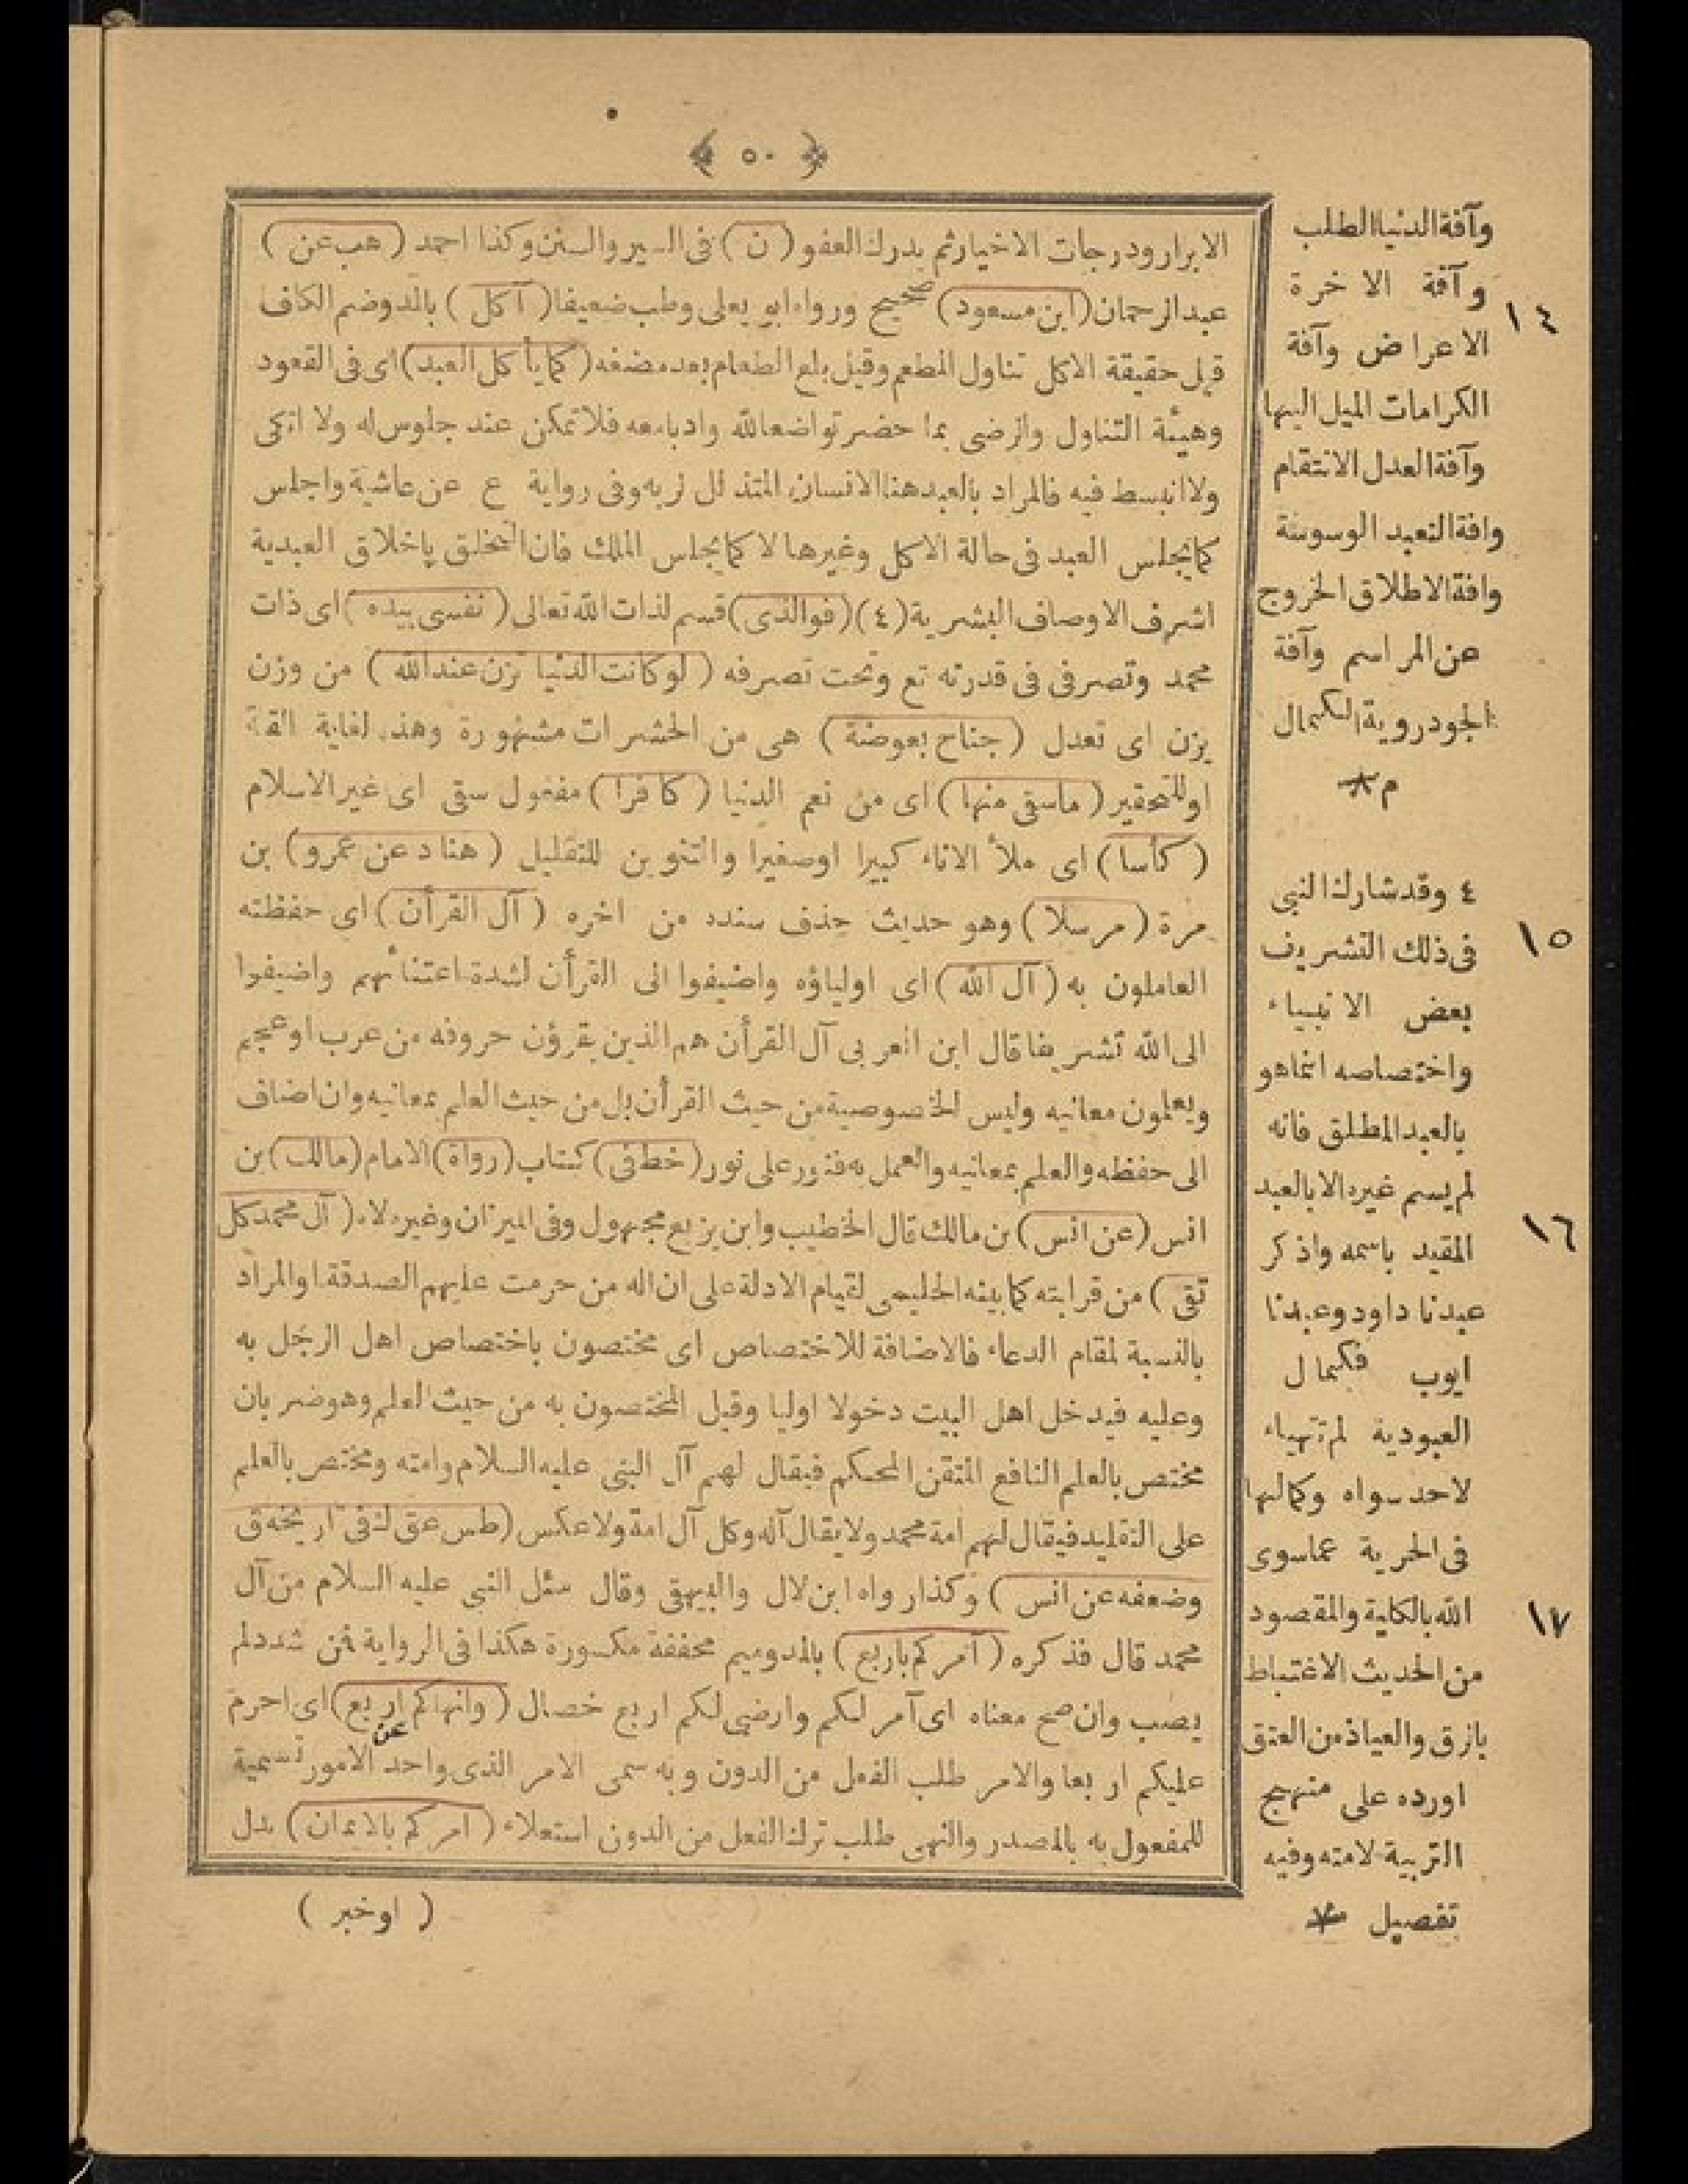 ﴿ ٥٠ ﴾
الابرار ودرجات الاخيار ثم يدرك العفو (ن) فى السير والسنن وكذا احمد (هب عن)
عبدالرحمان (ابن مسعود) صحيح ورواه ابو يعلى وطب ضعيفا (آكل) بالمد وضم الكاف
قيل حقيقة الاكل تناول المطعم وقيل بلع الطعام بعد مضغه (كما يأكل العبد) اى فى القعود
وهيئة التناول والرضى بما حضر تواضعا لله وادبا معه فلا تمكن عند جلوس له ولا اتكى
ولا انبسط فيه فالمراد بالعبد هنا الانسان المتذلل لربه وفى رواية ع عن عائشة واجلس
كما يجلس العبد فى حالة الاكل وغيرها لا كما يجلس الملك فان التخلق باخلاق العبدية
اشرف الاوصاف البشرية (٤) (فوالذى) قسم لذات الله تعالى (نفسى بيده) اى ذات
محمد وتصرفى فى قدرته تع وتحت تصرفه (لوكانت الدنيا تزن عندالله) من وزن
يزن اى تعدل (جناح بعوضة) هى من الحشرات مشهورة وهذه لغاية القلة
اوللتحقير (ماسقى منها) اى من نعم الدنيا (كافرا) مفعول سقى اى غير الاسلام
(كأسا) اى ملأ الاناء كبيرا اوصغيرا والتنوين للتقليل (هناد عن عمرو) بن
مرة (مرسلا) وهو حديث حذف سنده من اخره (آل القرأن) اى حفظته
العاملون به (آل الله) اى اولياؤه واضيفوا الى القرأن لشدة اعتنائهم واضيفوا
الى الله تشريفا قال ابن العربى آل القرأن هم الذين يقرؤن حروفه من عرب اوعجم
ويعلمون معانيه وليس الخصوصية من حيث القرأن بل من حيث العلم بمعانيه وان اضاف
الى حفظه والعلم بمعانيه والعمل به فنور على نور (خط فى) كتاب (رواة) الامام (مالك) بن
انس (عن انس) بن مالك قال الخطيب وابن بزيع مجهول وفى الميزان وغيره لاه (آل محمد كل
تقى) من قرابته كما بينه الحليمى لقيام الادلة على ان اله من حرمت عليهم الصدقة اوالمراد
بالنسبة لمقام الدعاء فالاضافة للاختصاص اى مختصون باختصاص اهل الرجل به
وعليه فيدخل اهل البيت دخولا اوليا وقيل المختصون به من حيث العلم وهو ضربان
مختص بالعلم النافع المتقن المحكم فيقال لهم آل النبى عليه السلام وامته ومختص بالعلم
على التقليد فيقال لهم امة محمد ولا يقال آله وكل آل امة ولا عكس (طس عق ك فى تاريخه ق
وضعفه عن انس) وكذا رواه ابن لال والبيهقى وقال سئل النبى عليه السلام من آل
محمد قال فذكره (آمركم باربع) بالمد وميم مخففة مكسورة هكذا فى الرواية فمن شدد لم
يصب وان صح معناه اى آمر لكم وارضى لكم اربع خصال (وانهاكم عن اربع) اى احرم
عليكم اربعا والامر طلب الفعل من الدون وبه سمى الامر الذى واحد الامور تسمية
للمفعول به بالمصدر والنهى طلب ترك الفعل من الدون استعلاء (امركم بالايمان) بدل
(اوخبر)
وآفة الدنيا الطلب
وآفة الاخرة
١٤
الاعراض وآفة
الكرامات الميل اليها
وآفة العدل الانتقام
وافة التعبد الوسوسة
وافة الاطلاق الخروج
عن المراسم وآفة
الجود روية الكمال
م
٤ وقد شارك النبى
١٥
فى ذلك التشريف
بعض الانبياء
واختصاصه انما هو
بالعبد المطلق فانه
لم يسم غيره الا بالعبد
١٦
المقيد باسمه واذكر
عبدنا داود وعبدنا
ايوب فكمال
العبودية لم تتهياء
لاحد سواه وكمالها
فى الحرية عماسوى
الله بالكلية والمقصود
١٧
من الحديث الاغتباط
بالرق والعياذ من العتق
اورده على منهج
التربية لامته وفيه
تفصيل